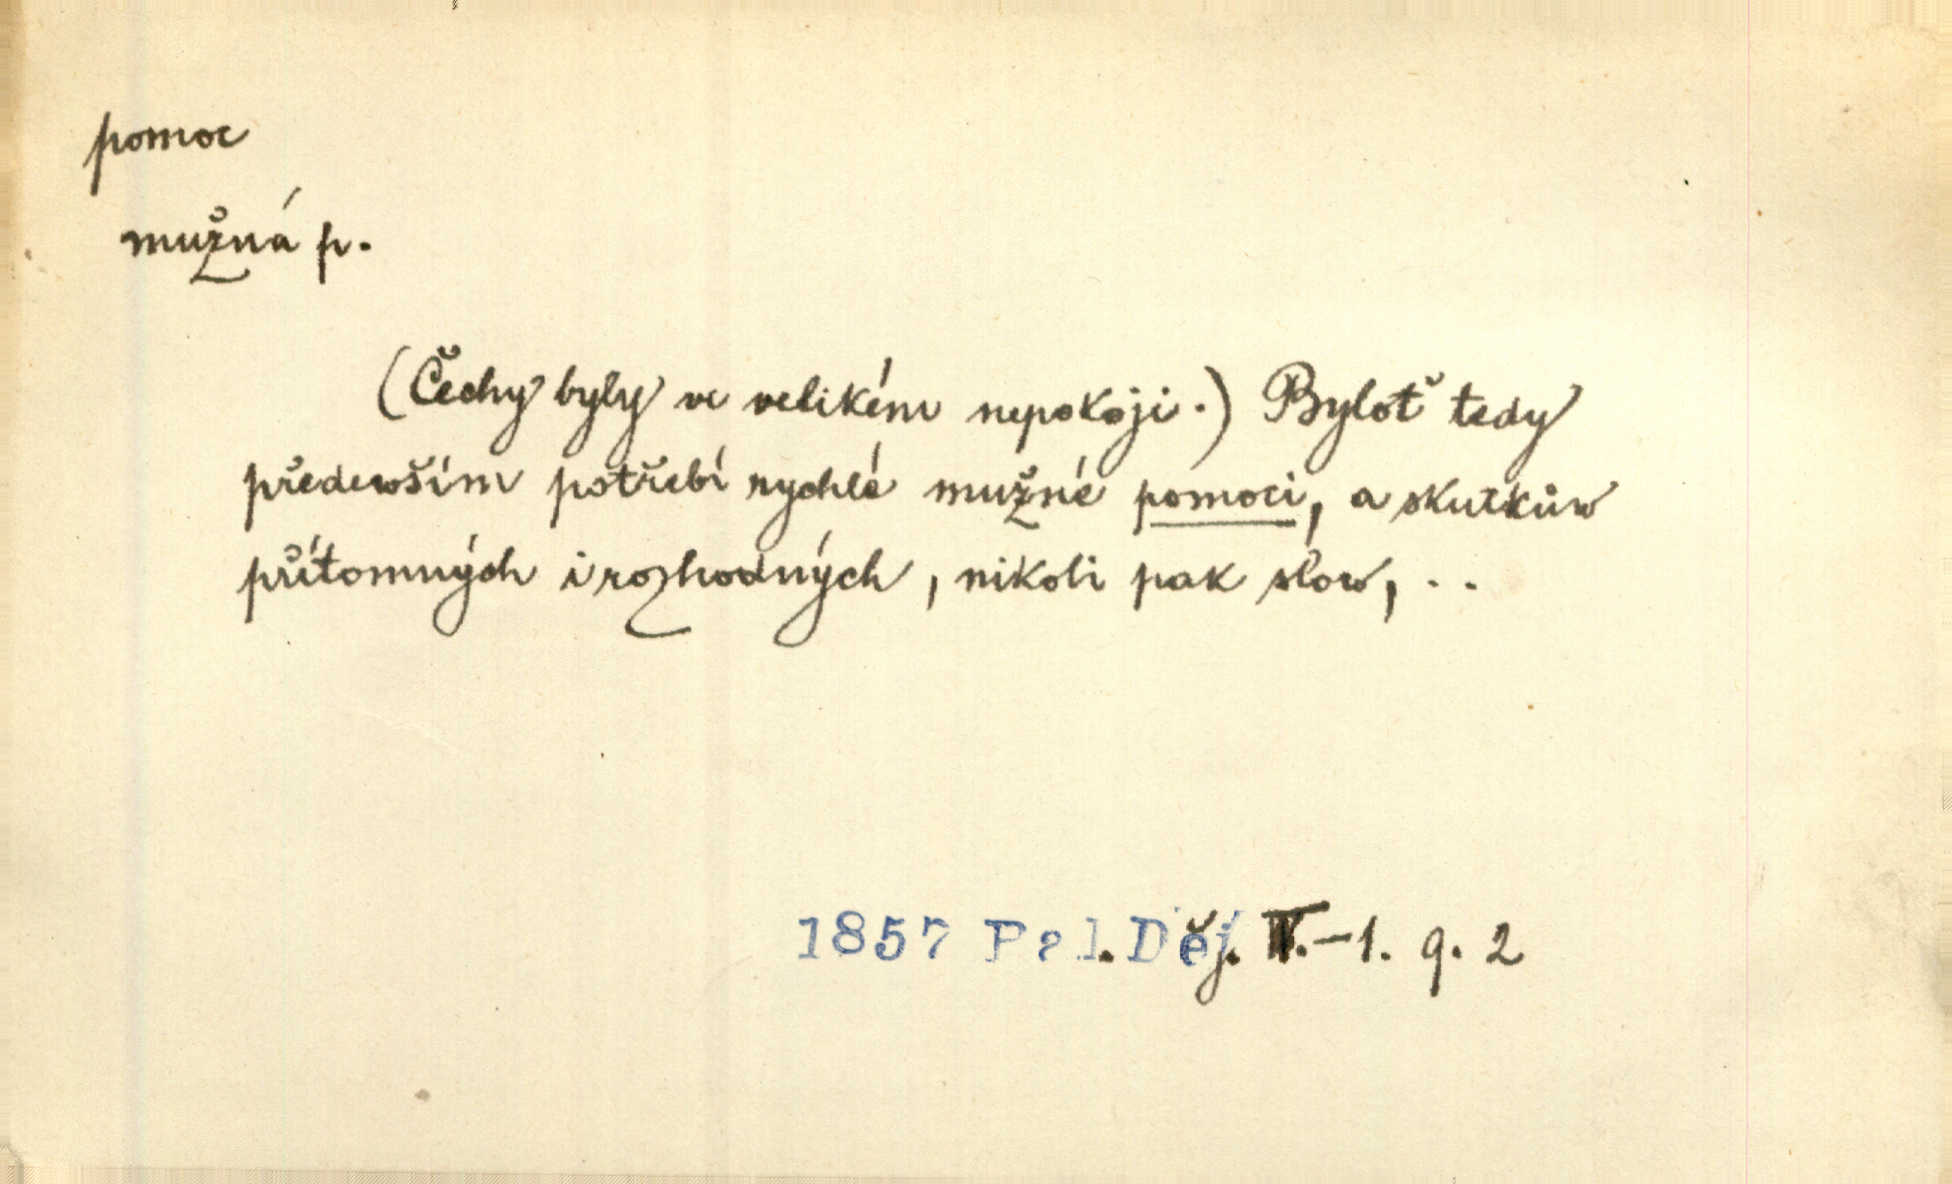 pomoc
mužná p.
(Čechy byly ve velikém nepokoji.) Byloť tedy
předewším potřebí rychlé mužné pomoci, a skutkůw
přítomných i rozhodných, nikoli pak slow, ..
1857 Pal. Děj. IV.-1. 9. 2